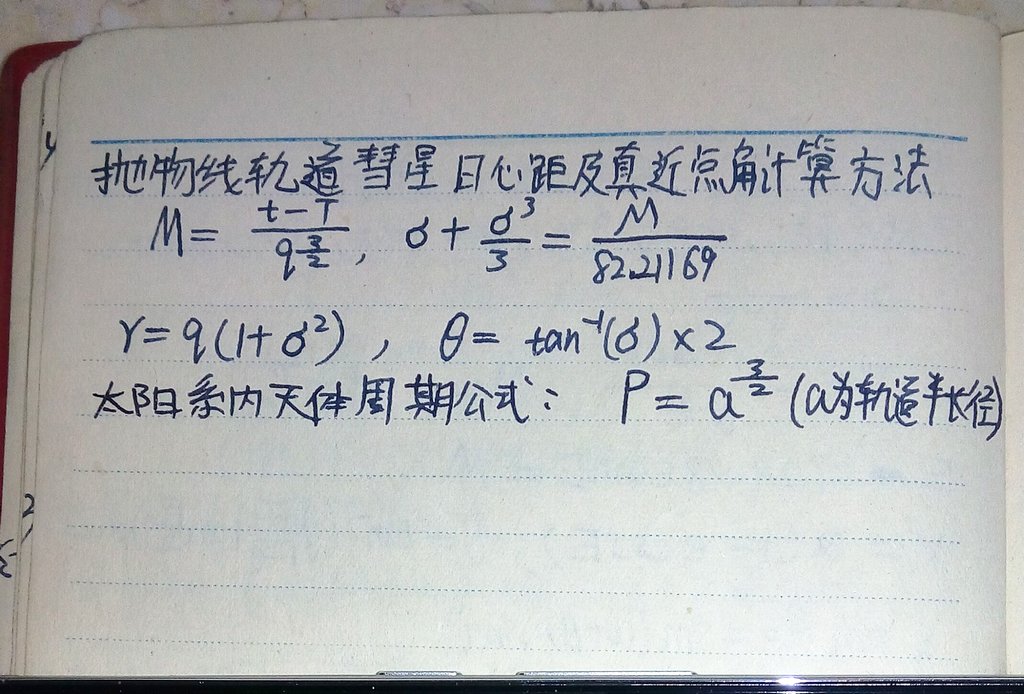 抛物线轨道彗星日心距及真近点角计算方法
M = (t-T)/q^(3/2) , σ + σ³/3 = M/82.21169
r = q(1+σ²) , θ = tan⁻¹(σ)×2
太阳系内天体周期公式: P = a^(3/2) (a为轨道半长径)